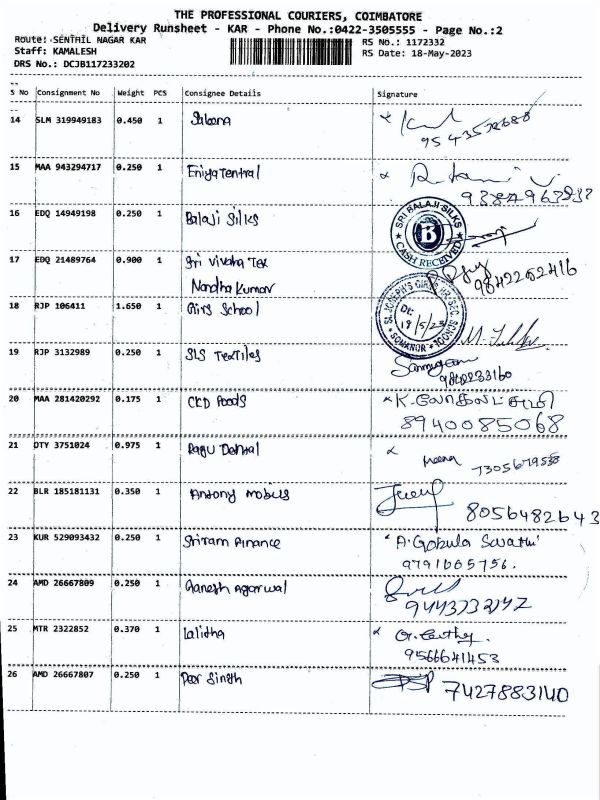 THE PROFESSIONAL COURIERS, COIMBATORE
Delivery Runsheet - KAR - Phone No.:0422-3505555 - Page No.:2
Route: SENTHIL NAGAR KAR
RS No.: 1172332
Staff: KAMALESH
RS Date: 18-May-2023
DRS No.: DCJB117233202
S No Consignment No Weight PCS Consignee Details Signature
14 SLM 319949183 0.450 1
9543572688
15 MAA 943294717 0.250 1 EniyaTentral
16 EDQ 14949198 0.250 1 Balaji Silks
SRI BALAJI SILKS
B
CASH RECEIVED
17 EDQ 21489764 0.900 1 Sri Vivaha Tex
Nandha kumar
9842252416
18 RJP 106411 1.650 1 Girs School
ST. JOSEPH'S GIRLS HR. SEC. SCHOOL
Dt:
19/5/23
SOMANUR
19 RJP 3132989 0.250 1 SLS Textiles
9842233160
20 MAA 281420292 0.175 1 CKD Foods
8940085068
21 DTY 3751024 0.975 1 Ragu Dental
Meena
7305679558
22 BLR 185181131 0.350 1 Antony mobils
8056482643
23 KUR 529093432 0.250 1 Sriram Finance A. Gokula Sarathi
9791665756.
24 AMD 26667809 0.250 1 Ganesh Agarwal
9443732142
25 MTR 2322852 0.370 1 Lalidha
9566641453
26 AMD 26667807 0.250 1 Peer Singh
7427883140